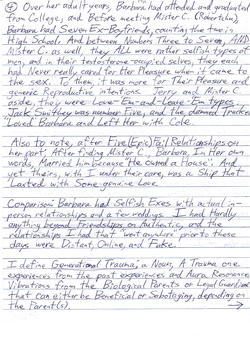 ④ Over her adult years, Barbara had attended and graduated
from College, and Before meeting Mister C. (Robertson),
Barbara had Seven Ex-Boyfriends, counting the two in
High School. And between Numbers Three to Seven, AND
Mister C. as well, they ALL were rather selfish types of
men, and in their testosterone-occupied selves, they each
had Never really cared for Her Pleasure when it came to
the sex. To them, it was more for Their Pleasure and
generic Reproductive intentions. Jerry and Mister C.
aside, they were Love-Em-and-Leave-Em types.
Jack Smithey was number Five, and the damned Trucker
Loved Barbara and Left Her with Cole.
Also to note, after Five (Epic) Fail Relationships on
her part, After finding Mister C., Barbara, In Her own
words, Married him because "He owned a House". And
yet theirs, with I under their care, was a Ship that
Lasted with Some genuine Love.
Comparison: Barbara had Selfish Exes with actual in-
person relationships and a few weddings. I had Hardly
anything beyond Friendships on Authentic, and the
relationships I had that "went anywhere" prior to these
days were Distant, Online, and Fake.
I define Generational Trauma; a Noun, A Trauma one
experiences from the past experiences and Aura Resonance
Vibrations from the Biological Parents or Legal Guardians
that can either be Beneficial or Sabotaging, depending on
the Parent(s).